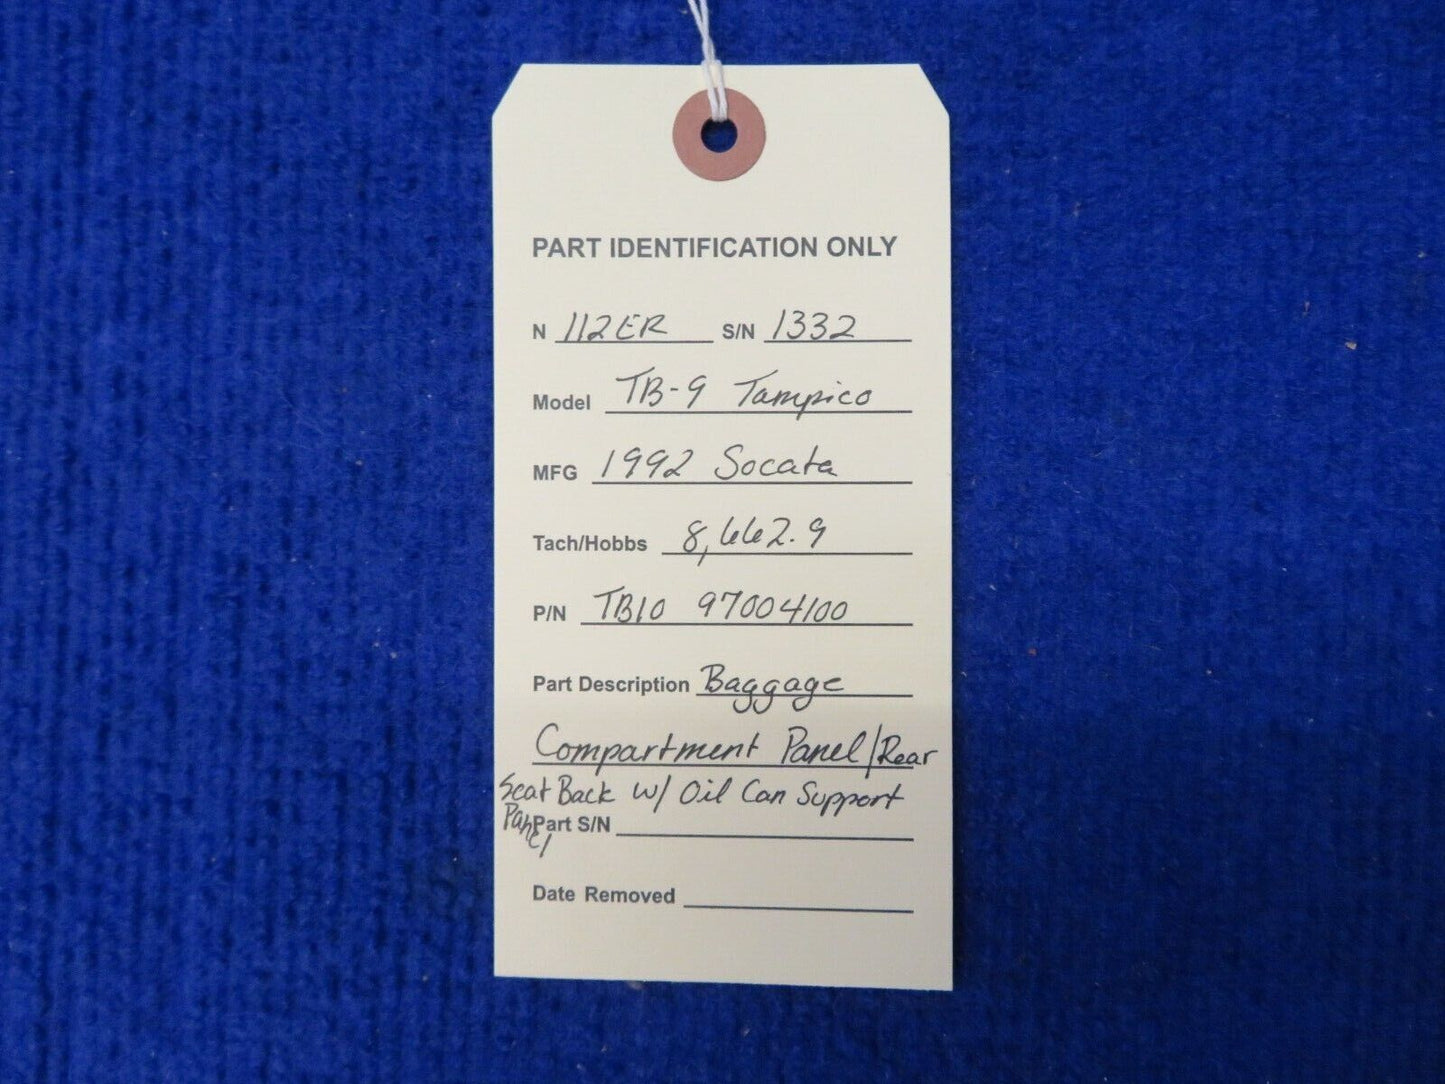 PART IDENTIFICATION ONLY
N 112ER S/N 1332
Model TB-9 Tampico
MFG 1992 Socata
Tach/Hobbs 8,662.9
P/N TB10 97004100
Part Description Baggage
Compartment Panel/Rear
Seat Back w/ Oil Can Support
Panel
Part S/N
Date Removed